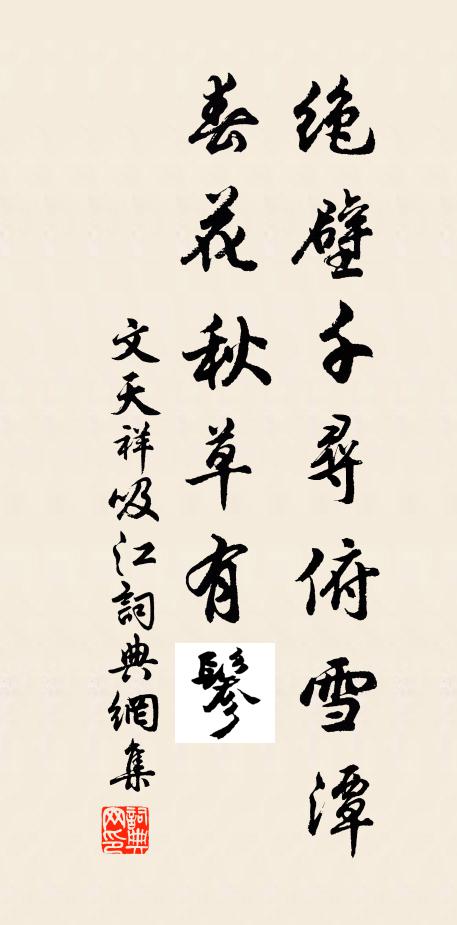 絶壁千尋俯雪潭
春花秋草有鬖
文天祥吸江詞典網集
詞典
网印